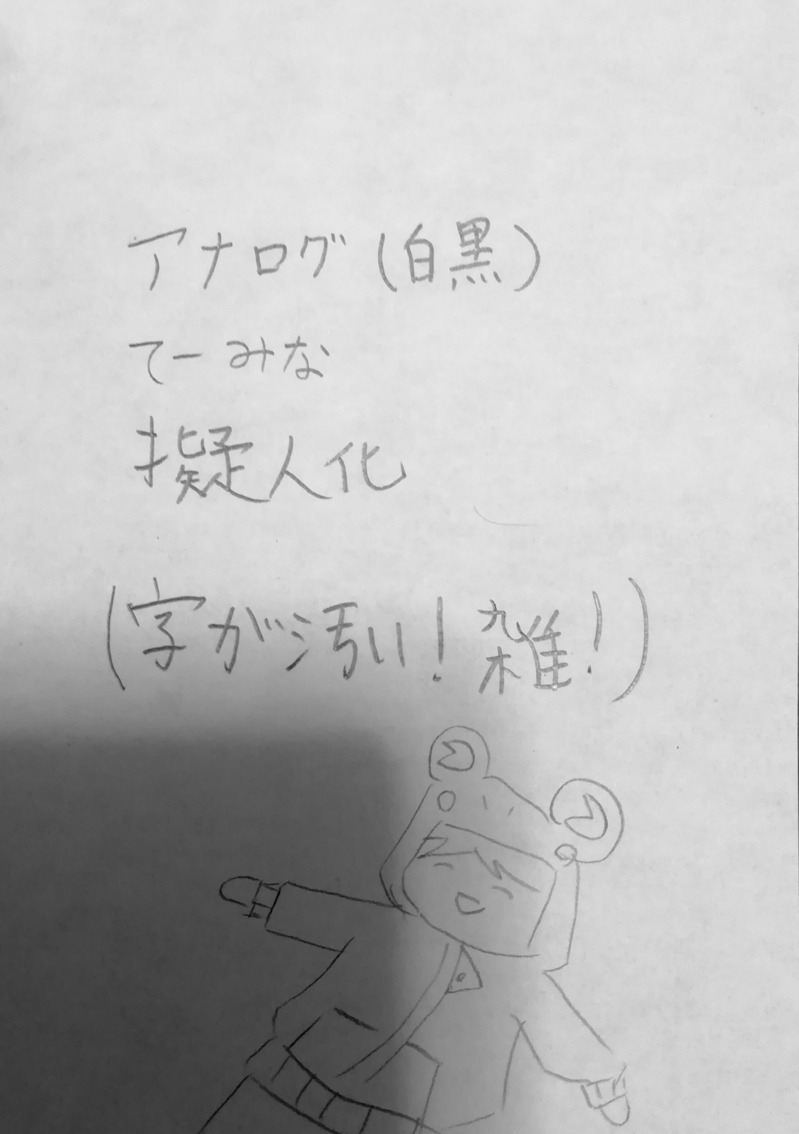 アナログ(白黒)
てーみな
擬人化
(字が汚い!雑!)